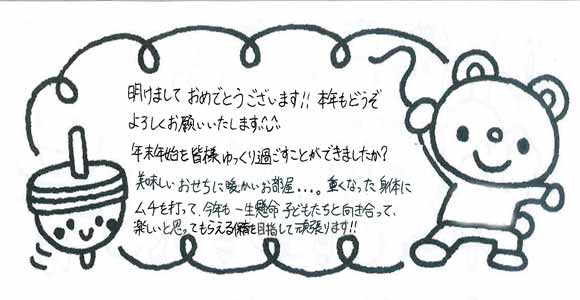 明けまして おめでとうございます!! 本年もどうぞ
よろしくお願いいたします^^
年末年始を皆様ゆっくり過ごすことができましたか?
美味しいおせちに暖かいお部屋...。重くなった身体に
ムチを打って、今年も一生懸命子どもたちと向き合って、
楽しいと思ってもらえる保育を目指して頑張ります!!